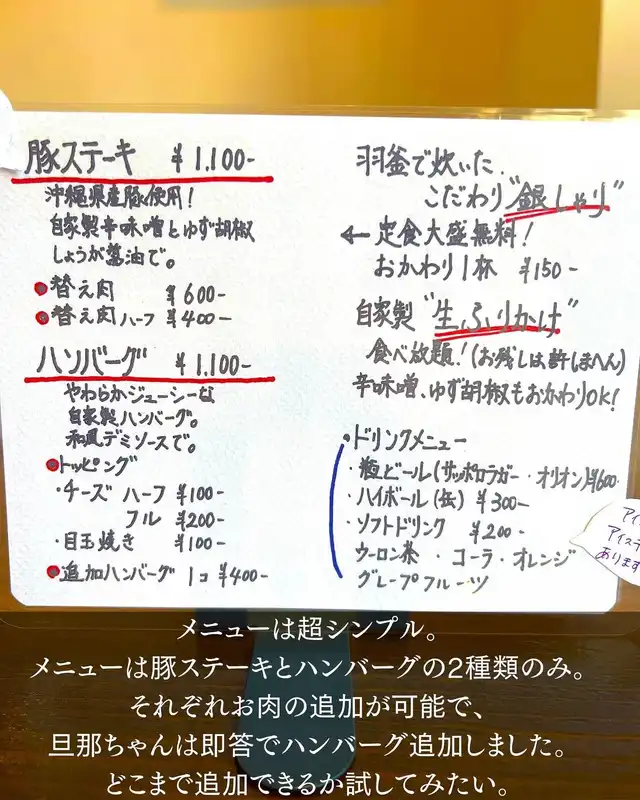 豚ステーキ ¥1,100-
沖縄県産豚使用!
自家製辛味噌とゆず胡椒
しょうが醤油で。
替え肉 ¥600-
替え肉ハーフ ¥400-
ハンバーグ ¥1,100-
やわらかジューシーな
自家製ハンバーグ。
和風デミソースで。
トッピング
・チーズ ハーフ ¥100-
フル ¥200-
・目玉焼き ¥100-
追加ハンバーグ 1コ ¥400-
羽釜で炊いた
こだわり"銀しゃり"
← 定食大盛無料!
おかわり1杯 ¥150-
自家製"生ふりかけ"
食べ放題!(お残しは許しまへん)
辛味噌、ゆず胡椒もおかわりOK!
・ドリンクメニュー
・瓶ビール(サッポロラガー・オリオン)¥600-
・ハイボール(缶) ¥300-
・ソフトドリンク ¥200-
ウーロン茶・コーラ・オレンジ
グレープフルーツ
アイ
アイステ
あります
メニューは超シンプル。
メニューは豚ステーキとハンバーグの2種類のみ。
それぞれお肉の追加が可能で、
旦那ちゃんは即答でハンバーグ追加しました。
どこまで追加できるか試してみたい。